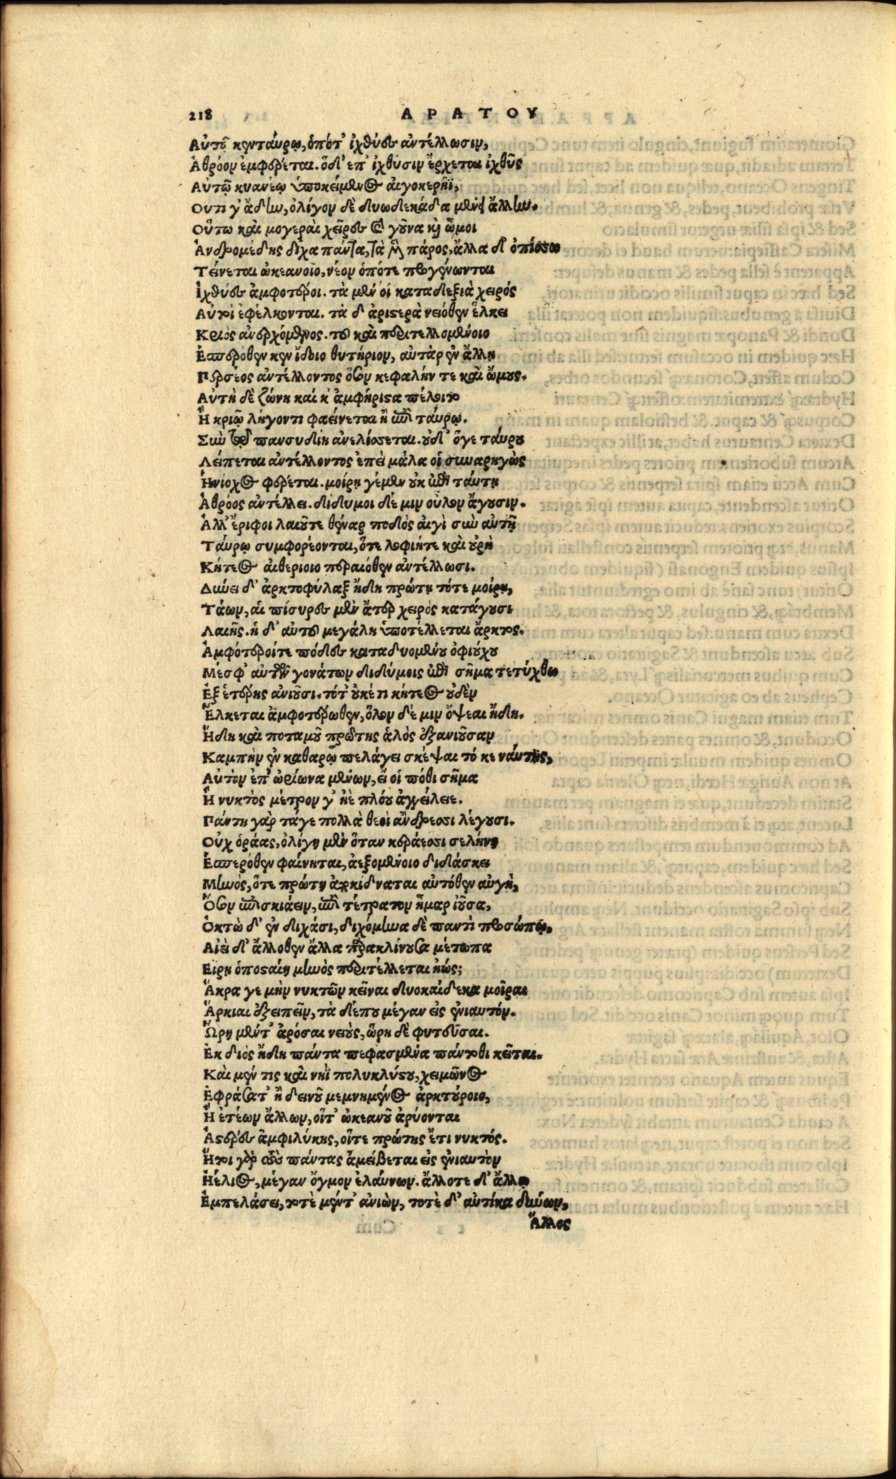 218 ΑΡΑΤΟΥ
Αὐτοῦ κενταύρου, ὁπότ' ἰχθύες ἀντέλλωσιν,
Ἀθρόον ἐμφέρεται. ὁ δ' ἐπ' ἰχθύσιν ἔρχεται ἰχθῦς
Αὐτῷ κυανέῳ ὑποκείμενος αἰγοκερῆϊ,
Οὔτι γ' ἄδην, ὀλίγον δὲ δυωδεκάδα μένει ἄλλην.
Οὕτω καὶ μογεραὶ χεῖρες καὶ γοῦνα καὶ ὦμοι
Ἀνδρομέδης δίχα πάντα, τὰ μὲν πάρος, ἄλλα δ' ὀπίσσω
Τείνεται ὠκεανοῖο, νέον ὁπότε προγένωνται
Ἰχθύες ἀμφότεροι. τὰ μέν οἱ κατὰ δεξιὰ χειρός
Αὐτοὶ ἐφέλκονται. τὰ δ' ἀριστερὰ νειόθεν ἕλκει
Κριὸς ἀνερχόμενος. τοῦ καὶ περιτελλομένοιο
Ἑσπερόθεν κεν ἴδοιο θυτήριον, αὐτὰρ ἐν ἄλλῃ
Περσέος ἀντέλλοντος ὅσον κεφαλήν τε καὶ ὤμους.
Αὐτὴ δὲ ζώνη καί κ' ἀμφήριστα πέλοιτο
Ἢ κριῷ λήγοντι φαείνεται ἢ ἐπὶ ταύρῳ.
Σὺν τῷ πανσυδίῃ ἀνελίσσεται. οὐδ' ὅγε ταύρου
Λείπεται ἀντέλλοντος ἐπεὶ μάλα οἱ συναρηγὼς
Ἡνίοχος φέρεται. μοίρῃ γέμεν οὐκ ἐπὶ ταύτῃ
Ἀθρόος ἀντέλλει. δίδυμοι δέ μιν οὖλον ἄγουσιν.
Ἀλλ' ἔριφοι λαιοῦτε θέναρ ποδὸς αἰγὶ σὺν αὐτῇ
Ταύρῳ συμφορέονται, ὅτε λοφιήτε καὶ οὐρὴ
Κήτεος αἰθερίοιο περαιόθεν ἀντέλλωσι.
Δύνει δ' ἀρκτοφύλαξ ἤδη πρώτῃ τότε μοίρῃ,
Τάων, αἳ πίσυρες μὲν ἄτερ χειρὸς κατάγουσι
Λαιῆς. ἡ δ' αὐτοῦ μεγάλη ὑποτέλλεται ἄρκτος.
Ἀμφότεροίτε πόδες καταδυομένου ὀφιούχου
Μέσφ' αὐτῶν γονάτων διδύμοις ἐπὶ σῆμα τετύχθω
Ἐξ ἑτέρης ἀνιοῦσι. τότ' οὐκέτι κήτεος οὐδὲν
Ἕλκεται ἀμφοτέρωθεν, ὅλον δέ μιν ὄψεαι ἤδη.
Ἤδη καὶ ποταμοῦ πρώτης ἁλὸς ἐξανιοῦσαν
Καμπὴν ἐν καθαρῷ πελάγει σκέψαι τό κε ναύτης,
Αὐτὸν ἐπ' ὠρίωνα μένων, εἴ οἱ πόθι σῆμα
Ἢ νυκτὸς μέτρον γ' ἠὲ πλόου ἀγγείλειε.
Πάντη γὰρ τάγε πολλὰ θεοὶ ἄνδρεσσι λέγουσι.
Οὐχ ὁράας, ὀλίγη μὲν ὅταν κεράεσσι σελήνη
Ἑσπερόθεν φαίνηται, ἀεξομένοιο διδάσκει
Μηνὸς, ὅτε πρώτη ἀποκίδναται αὐτόθεν αὐγὴ,
Ὅσον ἐπισκιάειν, ἐπὶ τέτρατον ἦμαρ ἰοῦσα,
Ὀκτὼ δ' ἐν διχάσι, διχόμηνα δὲ παντὶ προσώπῳ,
Αἰεὶ δ' ἄλλοθεν ἄλλα παρακλίνουσα μέτωπα
Εἴρη ὁποσταίη μηνὸς περιτέλλεται ἠώς;
Ἄκρα γε μὴν νυκτῶν κεῖναι δυοκαίδεκα μοῖραι
Ἄρκιαι ἐξειπεῖν, τὰ δέπου μέγαν εἰς ἐνιαυτόν.
Ὥρη μέντ' ἀρόσαι νειοὺς, ὥρη δὲ φυτεῦσαι.
Ἐκ διὸς ἤδη πάντα πεφασμένα πάντοθι κεῖται.
Καὶ μέν τις καὶ νηῒ πολυκλύστου, χειμῶνος
Ἐφράσατ' ἢ δεινοῦ μεμνημένος ἀρκτούροιο,
Ἢ ἑτέων ἄλλων, οἵτ' ὠκεανοῦ ἀρύονται
Ἀστέρες ἀμφιλύκης, οἵτε πρώτης ἔτι νυκτός.
Ἤτοι γὰρ τοὺς πάντας ἀμείβεται εἰς ἐνιαυτὸν
Ἠέλιος, μέγαν ὄγμον ἐλαύνων. ἄλλοτε δ' ἄλλῳ
Ἐμπελάσει, τοτὲ μέντ' ἀνιὼν, τοτὲ δ' αὐτίκα δύνων,
Ἄλλος